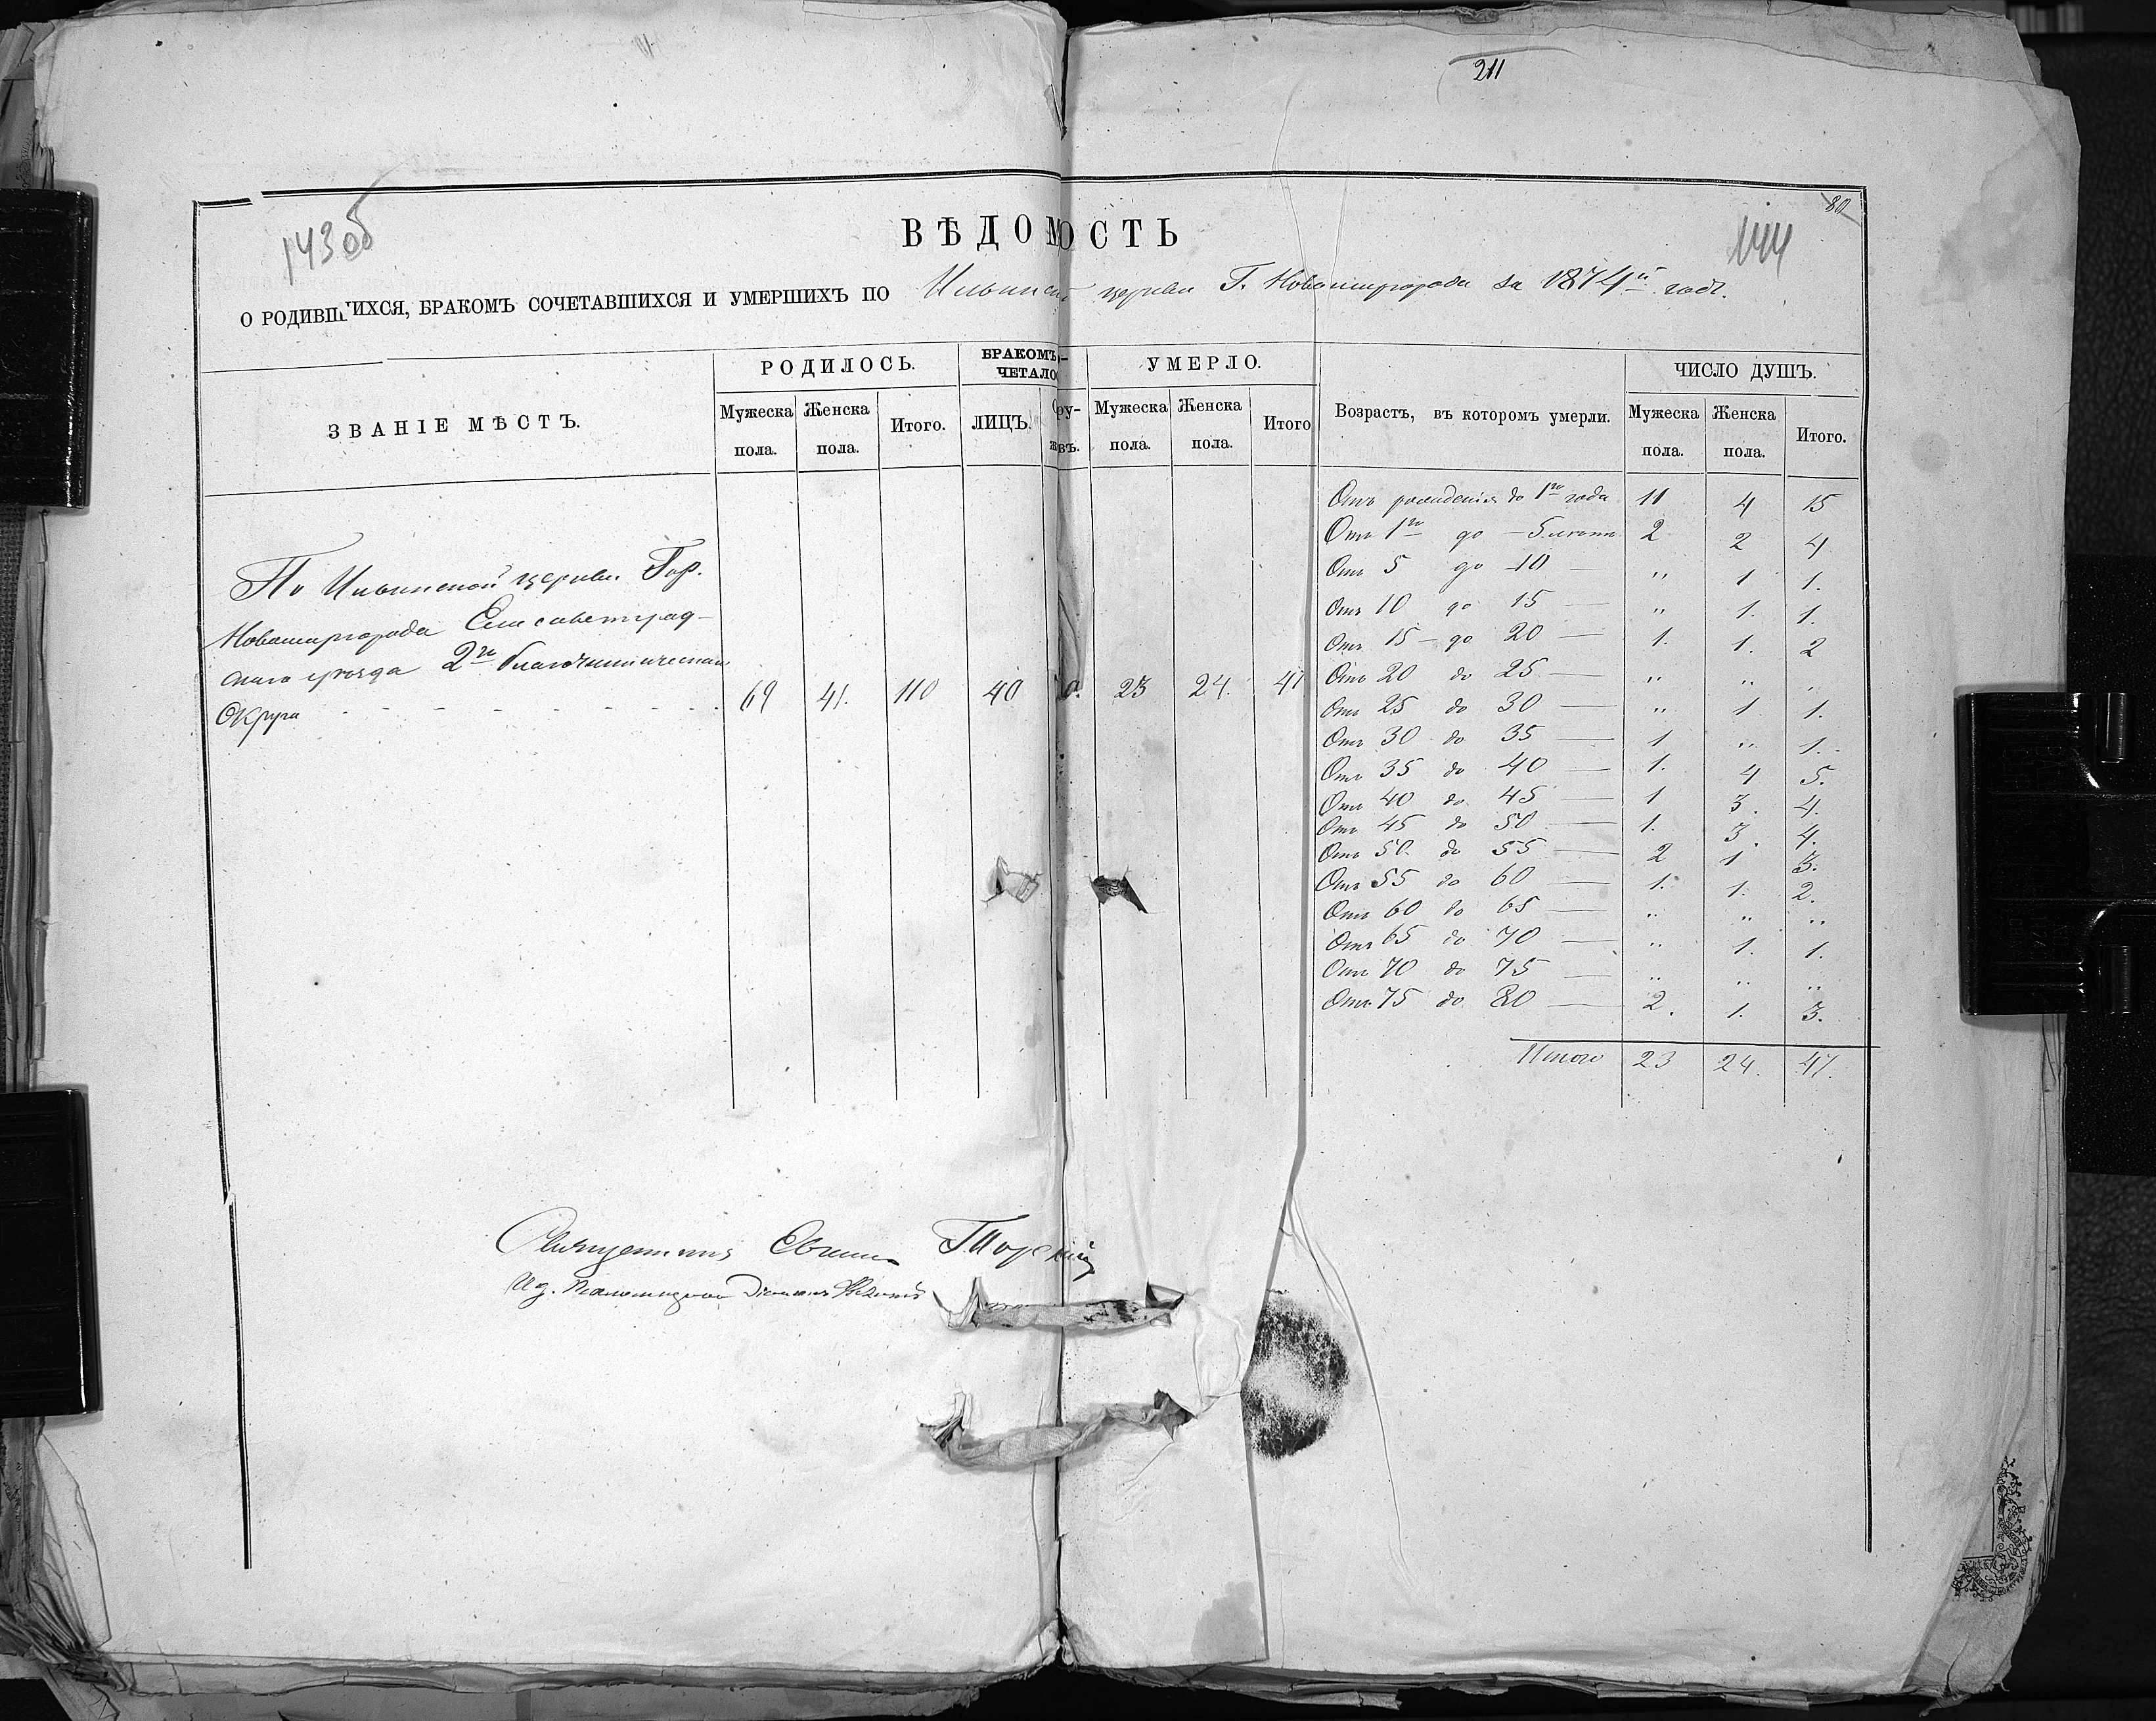 211
80
143об
144
ВѢДОМОСТЬ
О РОДИВШИХСЯ, БРАКОМЪ СОЧЕТАВШИХСЯ И УМЕРШИХЪ ПО Ильинск церкви Г. Новомиргорода за 1874й годъ.
ЗВАНІЕ МѢСТЪ.
РОДИЛОСЬ.
Мужеска пола.
Женска пола.
Итого.
БРАКОМЪ
ЧЕТАЛО
ЛИЦЪ.
УМЕРЛО.
Мужеска пола.
Женска пола.
Итого
Возрастъ, въ которомъ умерли.
ЧИСЛО ДУШЪ.
Мужеска пола.
Женска пола.
Итого.
По Ильинской церкви Гор.
Новомиргорода Елисаветград-
скаго уѣзда 2го благочинническаго
Округа 69 41. 110 40 23 24. 47
Отъ рожденія до 1го года 11 4 15
Отъ 1го до 5 лѣтъ 2 2 4
Отъ 5 до 10 — „ 1 1.
Отъ 10 до 15 — „ 1. 1.
Отъ 15 до 20 — 1. 1. 2
Отъ 20 до 25 — „ „ „
Отъ 25 до 30 — „ 1 1.
Отъ 30 до 35 — 1 „ 1.
Отъ 35 до 40 — 1. 4 5.
Отъ 40 до 45 — 1 3. 4.
Отъ 45 до 50 — 1. 3. 4.
Отъ 50 до 55 — 2 1 3.
Отъ 55 до 60 — 1. 1. 2.
Отъ 60 до 65 — „ „ „
Отъ 65 до 70 — „ 1. 1.
Отъ 70 до 75 — „ „ „
Отъ 75 до 80 — 2. 1. 3.
Итого 23 24. 47.
Священникъ
И д. Псаломщика